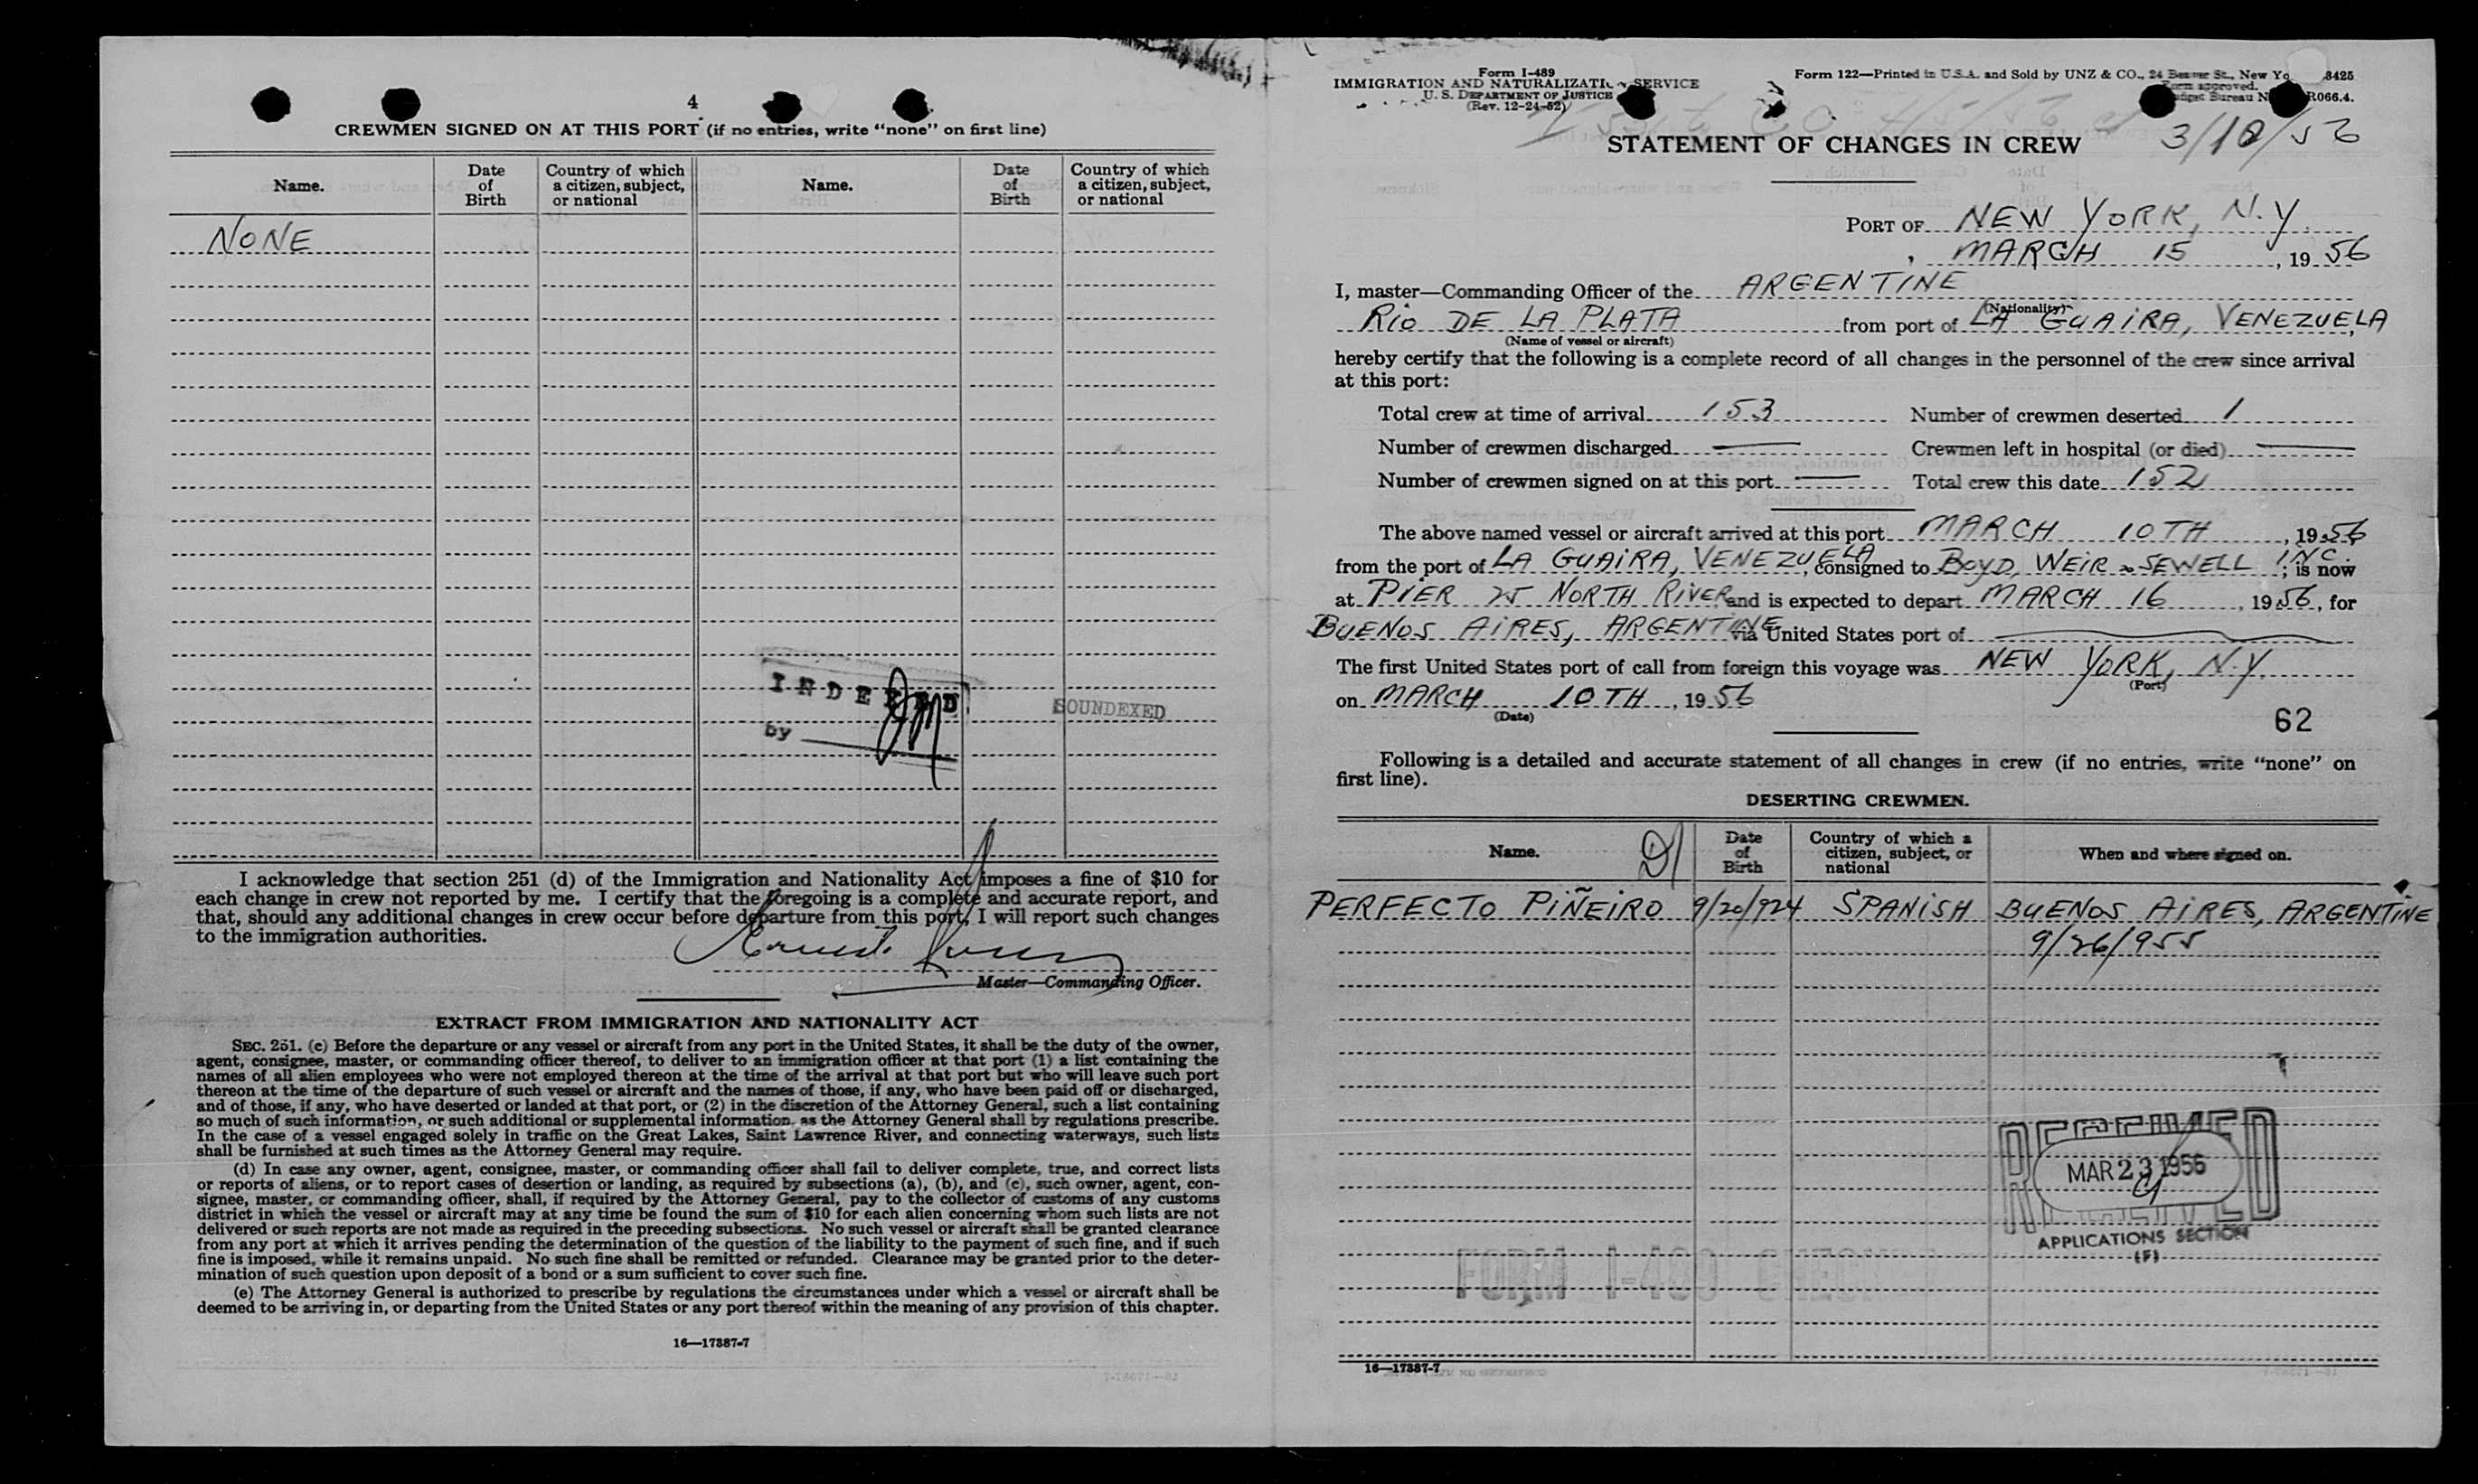 4
CREWMEN SIGNED ON AT THIS PORT (if no entries, write "none" on first line)
Name.
Date of Birth
Country of which a citizen, subject, or national
Name.
Date of Birth
Country of which a citizen, subject, or national
NONE
INDEXED
by
SOUNDEXED
I acknowledge that section 251 (d) of the Immigration and Nationality Act imposes a fine of $10 for
each change in crew not reported by me. I certify that the foregoing is a complete and accurate report, and
that, should any additional changes in crew occur before departure from this port, I will report such changes
to the immigration authorities.
Master—Commanding Officer.
EXTRACT FROM IMMIGRATION AND NATIONALITY ACT
SEC. 251. (c) Before the departure or any vessel or aircraft from any port in the United States, it shall be the duty of the owner,
agent, consignee, master, or commanding officer thereof, to deliver to an immigration officer at that port (1) a list containing the
names of all alien employees who were not employed thereon at the time of the arrival at that port but who will leave such port
thereon at the time of the departure of such vessel or aircraft and the names of those, if any, who have been paid off or discharged,
and of those, if any, who have deserted or landed at that port, or (2) in the discretion of the Attorney General, such a list containing
so much of such information, or such additional or supplemental information, as the Attorney General shall by regulations prescribe.
In the case of a vessel engaged solely in traffic on the Great Lakes, Saint Lawrence River, and connecting waterways, such lists
shall be furnished at such times as the Attorney General may require.
(d) In case any owner, agent, consignee, master, or commanding officer shall fail to deliver complete, true, and correct lists
or reports of aliens, or to report cases of desertion or landing, as required by subsections (a), (b), and (c), such owner, agent, con-
signee, master, or commanding officer, shall, if required by the Attorney General, pay to the collector of customs of any customs
district in which the vessel or aircraft may at any time be found the sum of $10 for each alien concerning whom such lists are not
delivered or such reports are not made as required in the preceding subsections. No such vessel or aircraft shall be granted clearance
from any port at which it arrives pending the determination of the question of the liability to the payment of such fine, and if such
fine is imposed, while it remains unpaid. No such fine shall be remitted or refunded. Clearance may be granted prior to the deter-
mination of such question upon deposit of a bond or a sum sufficient to cover such fine.
(e) The Attorney General is authorized to prescribe by regulations the circumstances under which a vessel or aircraft shall be
deemed to be arriving in, or departing from the United States or any port thereof within the meaning of any provision of this chapter.
16—17387-7
Form I-489
IMMIGRATION AND NATURALIZATION SERVICE
U. S. DEPARTMENT OF JUSTICE
(Rev. 12-24-52)
Form 122—Printed in U.S.A. and Sold by UNZ & CO., 24 Beaver St., New Yo 8425
Form approved.
Budget Bureau N R066.4.
STATEMENT OF CHANGES IN CREW
3/10/56
PORT OF NEW YORK, N.Y.
MARCH 15, 1956
I, master—Commanding Officer of the ARGENTINE
(Nationality)
RIO DE LA PLATA from port of LA GUAIRA, VENEZUELA,
(Name of vessel or aircraft)
hereby certify that the following is a complete record of all changes in the personnel of the crew since arrival
at this port:
Total crew at time of arrival 153 Number of crewmen deserted 1
Number of crewmen discharged — Crewmen left in hospital (or died) —
Number of crewmen signed on at this port — Total crew this date 152
The above named vessel or aircraft arrived at this port MARCH 10TH, 1956,
from the port of LA GUAIRA, VENEZUELA, consigned to BOYD, WEIR & SEWELL INC.; is now
at PIER 25 NORTH RIVER and is expected to depart MARCH 16, 1956, for
BUENOS AIRES, ARGENTINE via United States port of —
The first United States port of call from foreign this voyage was NEW YORK, N.Y.
(Port)
on MARCH 10TH, 1956
(Date)
62
Following is a detailed and accurate statement of all changes in crew (if no entries, write "none" on
first line).
DESERTING CREWMEN.
Name.
Date of Birth
Country of which a citizen, subject, or national
When and where signed on.
PERFECTO PIÑEIRO 9/20/924 SPANISH BUENOS AIRES, ARGENTINE
9/26/955
RECEIVED
MAR 23 1956
APPLICATIONS SECTION
(F)
FORM I-489
16—17387-7